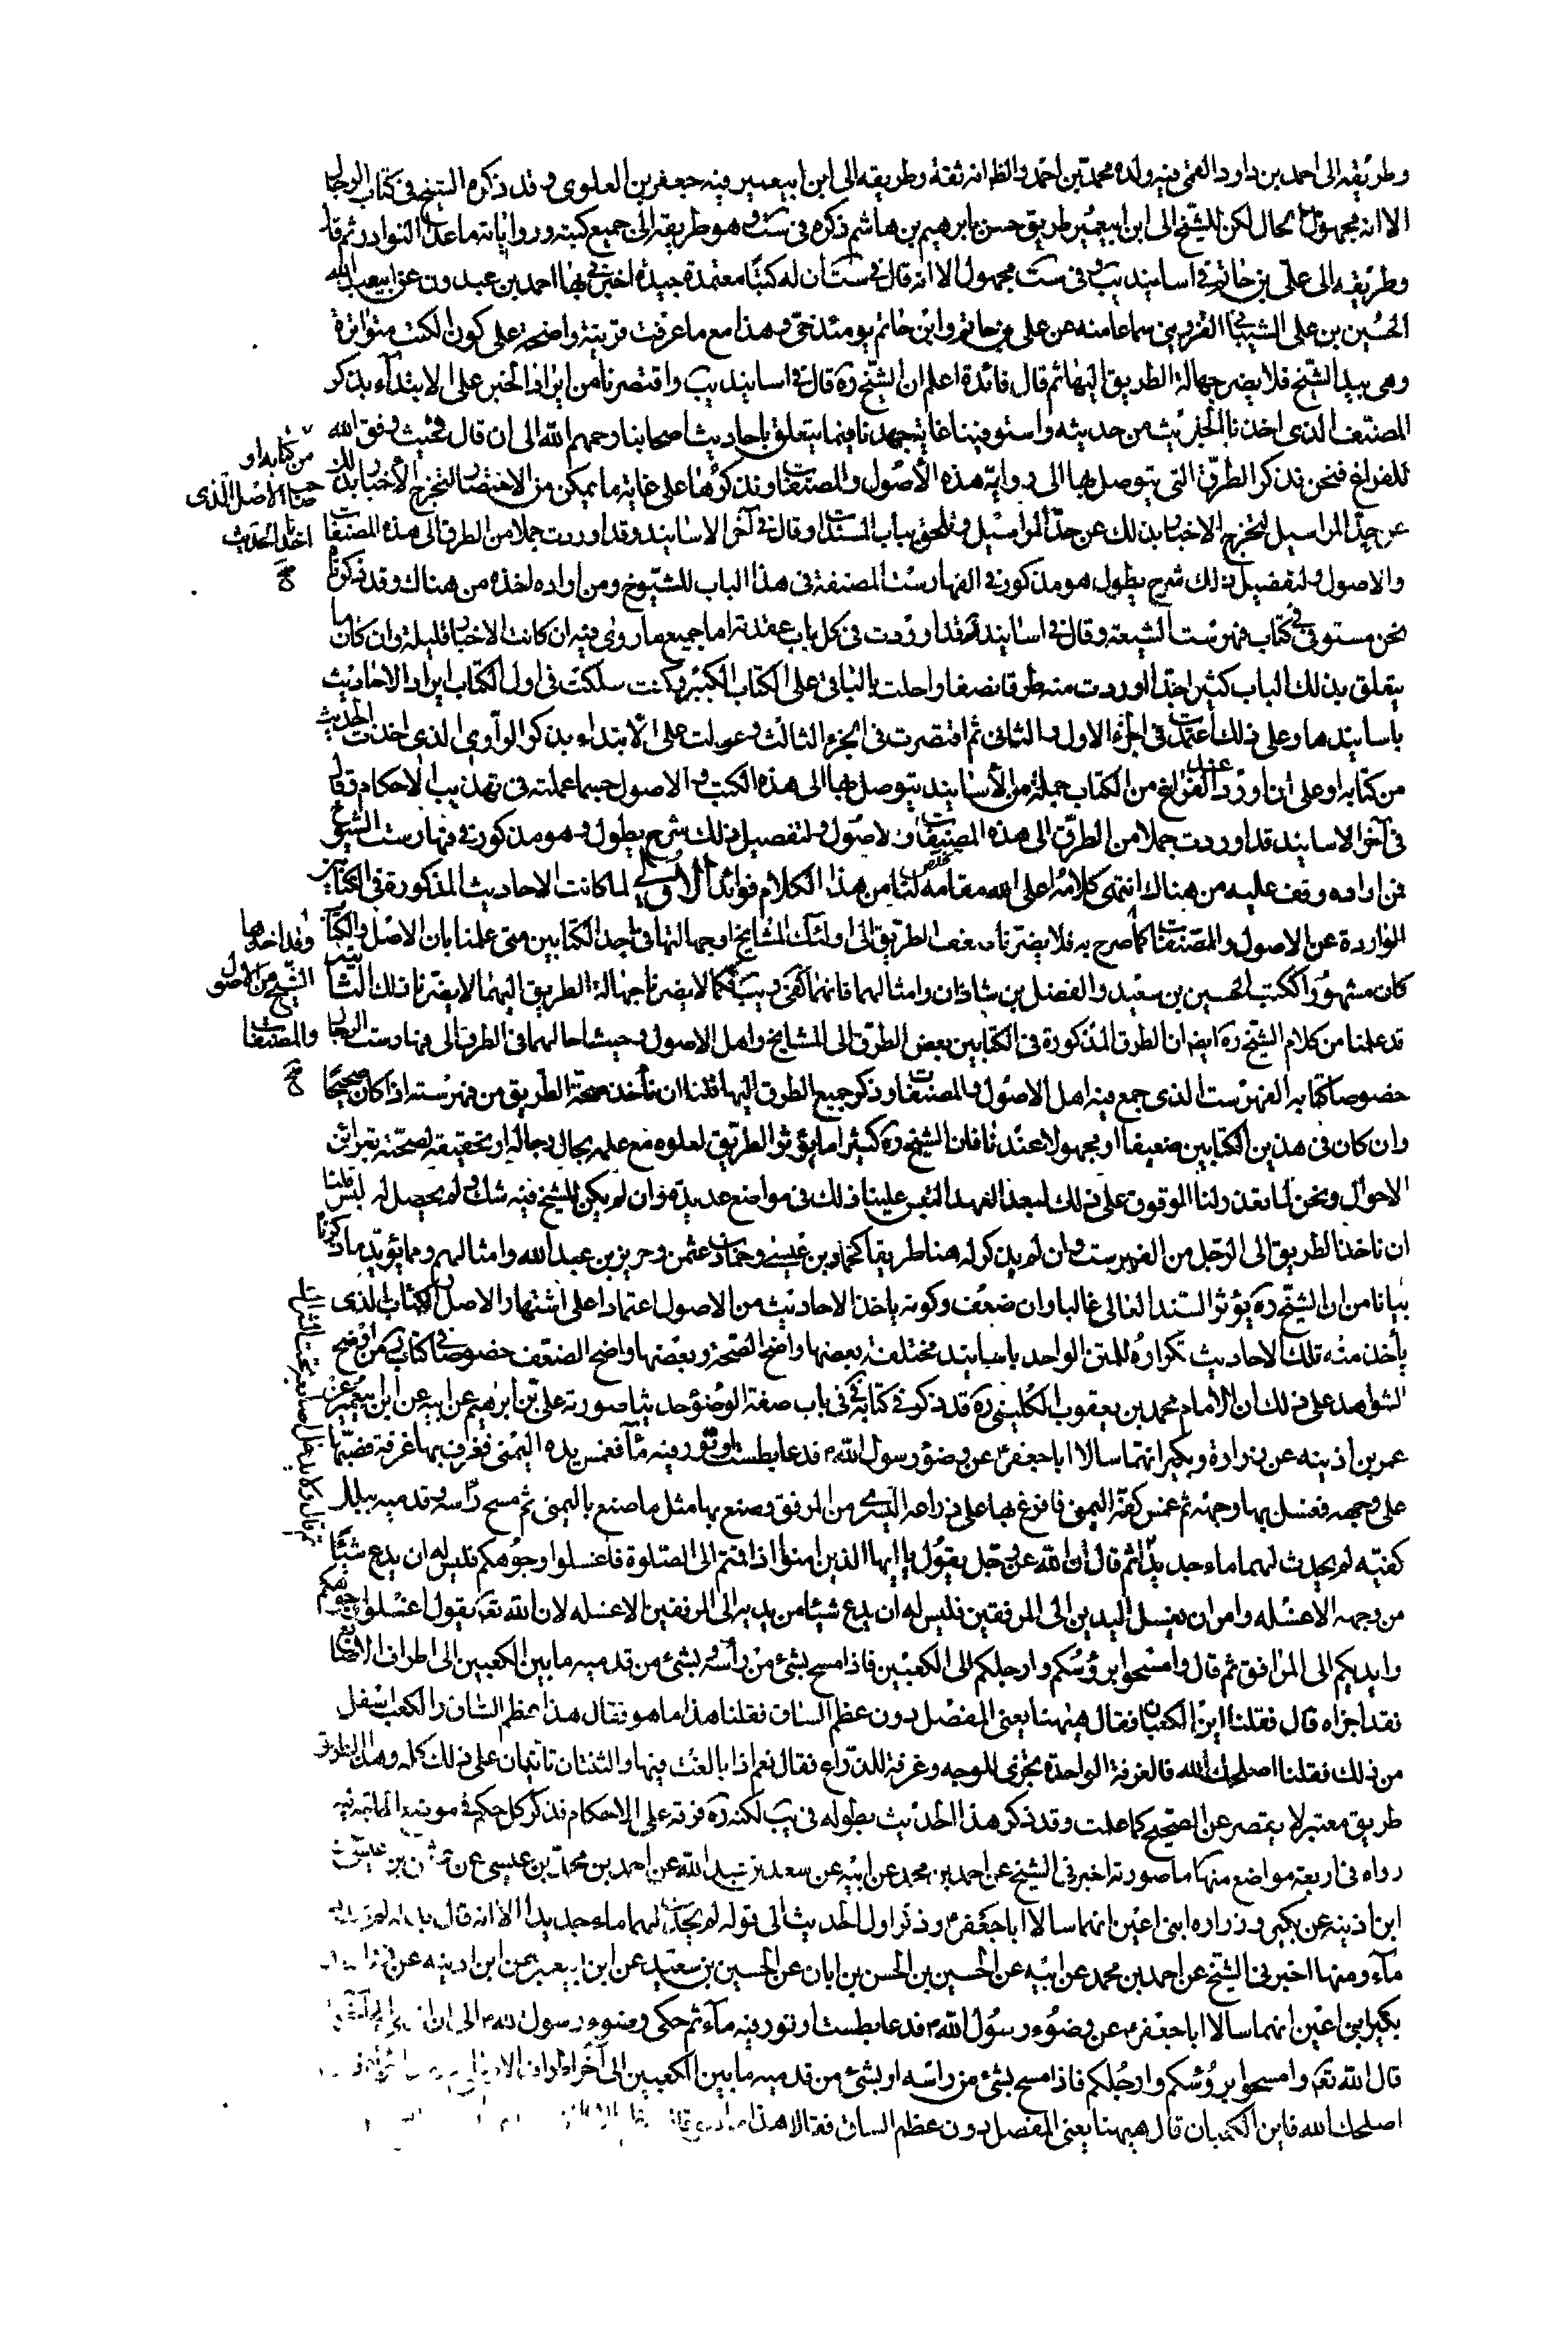 وطريقه الى احمد بن داود القمى فيه ولده محمد بن احمد والظ انه ثقة وطريقه الى ابن ابيعمير فيه جعفر بن العلوى وقد ذكره الشيخ فى كتاب الرجال
الا انه مجهول الحال لكن للشيخ الى ابن ابيعمير طريق حسن بابرهيم بن هاشم ذكره فى ست وهو طريقه الى جميع كتبه ورواياته ما عدا النوادر ثم قال
وطريقه الى على بن حاتم فى اسانيد يب وفى ست مجهول الا انه قال فى ست ان له كتبا معتمدة جيدة اخبرنى بها احمد بن عبدون عن ابيعبد الله
الحسين بن على الشيبانى القزوينى سماعا منه عن على بن حاتم وابن حاتم يومئذ حى وهذا مع ما عرفت قرينة واضحة على كون الكتب متواترة
وهى بيد الشيخ فلا يضر جهالة الطريق اليها ثم قال فائدة اعلم ان الشيخ ره قال فى اسانيد يب واقتصرنا من ايراد الخبر على الابتداء بذكر
المصنف الذى اخذنا الخبر من حديثه واستوفينا غاية جهدنا فيما يتعلق باحاديث اصحابنا رحمهم الله الى ان قال فحيث وفق الله
للفراغ فنحن نذكر الطرق التى يتوصل بها الى رواية هذه الأصول والمصنفات ونذكرها على غاية ما يمكن من الاختصار لتخرج الأخبار بذلك
عن حد المراسيل لتخرج الاخبار بذلك عن حد المراسيل وتلحق بباب المسندات وقال فى آخر الاسانيد وقد اوردت جملا من الطرق الى هذه المصنفات
والاصول ولتفصيل ذلك شرح يطول هو مذكور فى الفهارست المصنفة فى هذا الباب للشيوخ ومن اراده اخذه من هناك وقد ذكرنا
نحن مستوفى فى كتاب فهرست الشيعة وقال فى اسانيد قد اوردت فى كل باب عقدته اما جميع ما روى فيه ان كانت الاخبار قليلة وان كان ما
يتعلق بذلك الباب كثيرا جدا اوردت منه طرقا نصفا واحلت بالباقى على الكتاب الكبير وكنت سلكت فى اول الكتاب ايراد الاحاديث
باسانيدها وعلى ذلك اعتمدت فى الجزء الاول والثانى ثم اقتصرت فى الجزء الثالث وعولت على الابتداء بذكر الراوى الذى اخذت الحديث
من كتابه او على ان اورد عند الفراغ من الكتاب جملة من الأسانيد يتوصل بها الى هذه الكتب والاصول حسبما عملته فى تهذيب الاحكام وقال
فى آخر الاسانيد قد اوردت جملا من الطرق الى هذه المصنفات والاصول ولتفصيل ذلك شرح يطول وهو مذكور فى فهارست الشيوخ
فمن اراده وقف عليه من هناك انتهى كلامه اعلى الله مقامه تلخص لنا من هذا الكلام فوائد الأولى لما كانت الاحاديث المذكورة فى الكتابين
الواردة عن الاصول والمصنفات كما صرح به فلا يضرنا ضعف الطريق الى اولئك المشايخ او جهالتها فى احد الكتابين متى علمنا بان الاصل والكتاب
كان مشهورا ككتب الحسين بن سعيد والفضل بن شاذان وامثالهما فانهما كفى ويب فكما لا يضرنا جهالة الطريق اليهما لا يضرنا ذلك الثانية
قد علمنا من كلام الشيخ ره ايضا ان الطرق المذكورة فى الكتابين بعض الطرق الى المشايخ واهل الاصول وحيث احالهما فى الطرق الى فهارست الرجال
خصوصا كتابه الفهرست الذى جمع فيه اهل الاصول والمصنفات وذكر جميع الطرق اليها فلنا ان نأخذ صحة الطريق من فهرسته اذا كان صحيحا
وان كان فى هذين الكتابين ضعيفا او مجهولا عندنا فان الشيخ ره كثيرا ما يؤثر الطريق لعلوه مع علمه بحال رجاله او تحقيقه لصحته بقرائن
الاحوال ونحن لما تعذر لنا الوقوف على ذلك لبعد العهد التبس علينا ذلك فى مواضع عديدة وان لم يكن للشيخ فيه شك ولم يحصل له لبس فلنا
ان ناخذ الطريق الى الرجل من الفهرست وان لم يذكر له هنا طريقا كحماد بن عيسى وحماد بن عثمن وحريز بن عبد الله وامثالهم ومما يؤيد ما ذكرنا
بيانا من ان الشيخ ره يؤثر السند العالى غالبا وان ضعف وكونه ياخذ الاحاديث من الاصول اعتمادا على اشتهار الاصل والكتاب الذى
يأخذ منه تلك الاحاديث تكراره للمتن الواحد باسانيد مختلفة بعضها واضح الصحة وبعضها واضح الضعف خصوصا فى كتاب يب ومن اوضح
الشواهد على ذلك ان الامام محمد بن يعقوب الكلينى ره قد ذكر فى كتابه فى باب صفة الوضوء حديثا صورته على بن ابرهيم عن ابيه عن ابن ابيعمير عن
عمر بن أذينه عن زرارة وبكير انهما سالا ابا جعفر ع عن وضوء رسول الله ص فدعا بطست او تور فيه ماء فغمس يده اليمنى فغرف بها غرفة فصبها
على وجهه فغسل بها وجهه ثم غمس كفه اليمنى فافرغ بها على ذراعه اليسرى من المرفق وصنع بها مثل ما صنع باليمنى ثم مسح راسه وقدميه ببلل
كفيه لم يحدث لهما ماء جديدا ثم قال ان الله عز وجل يقول يا ايها الذين امنوا اذا قمتم الى الصلوة فاغسلوا وجوهكم فليس له ان يدع شيئا
من وجهه الا غسله وامر ان يغسل اليدين الى المرفقين فليس له ان يدع شيئا من يديه الى المرفقين الا غسله لان الله تعه يقول اغسلوا وجوهكم
وايديكم الى المرافق ثم قال وامسحوا برؤسكم وارجلكم الى الكعبين فاذا مسح بشئ من رأسه او بشئ من قدميه ما بين الكعبين الى اطراف الاصابع
فقد اجزاه قال فقلنا اين الكعبان فقال هيهنا يعنى المفصل دون عظم الساق فقلنا هذا ما هو فقال هذا عظم الساق والكعب اسفل
من ذلك فقلنا اصلحك الله فالغرفة الواحدة تجزى للوجه وغرفة للذراع فقال نعم اذا بالغت فيها والثنتان تاتيان على ذلك كله وهذا الطريق
طريق معتبر لا يقصر عن الصحيح كما علمت وقد ذكر هذا الحديث بطوله فى يب لكنه ره فرقه على الاحكام فذكر كل حكم فى موضعه
رواه فى اربعة مواضع منها ما صورته اخبرنى الشيخ عن احمد بن محمد عن ابيه عن سعد بن عبد الله عن احمد بن محمد بن عيسى عن عثمن بن عيسى عن
ابن اذينه عن بكير وزراره ابنى اعين انهما سالا ابا جعفر وذكر اول الحديث الى قوله لم يجدد لهما ماء جديدا الا انه قال
ماء ومنها اخبرنى الشيخ عن احمد بن محمد عن ابيه عن الحسين بن الحسن بن ابان عن الحسين بن سعيد عن ابن ابيعمير عن ابن اذينه عن
بكير ابنى اعين انهما سالا ابا جعفر ع عن وضوء رسول الله ص فدعا بطست او تور فيه ماء ثم حكى وضوء رسول الله ص الى ان
قال الله تعه وامسحوا برؤسكم وارجلكم فاذا مسح بشئ من راسه او بشئ من قدميه ما بين الكعبين الى آخر اطراف
اصلحك الله فاين الكعبان قال هيهنا يعنى المفصل دون عظم الساق فقالا هذا
من كتابه او
صاحب الأصل الذى
اخذنا الحديث
صح
وقد اخذها
الشيخ من الاصول
والمصنفات
صح